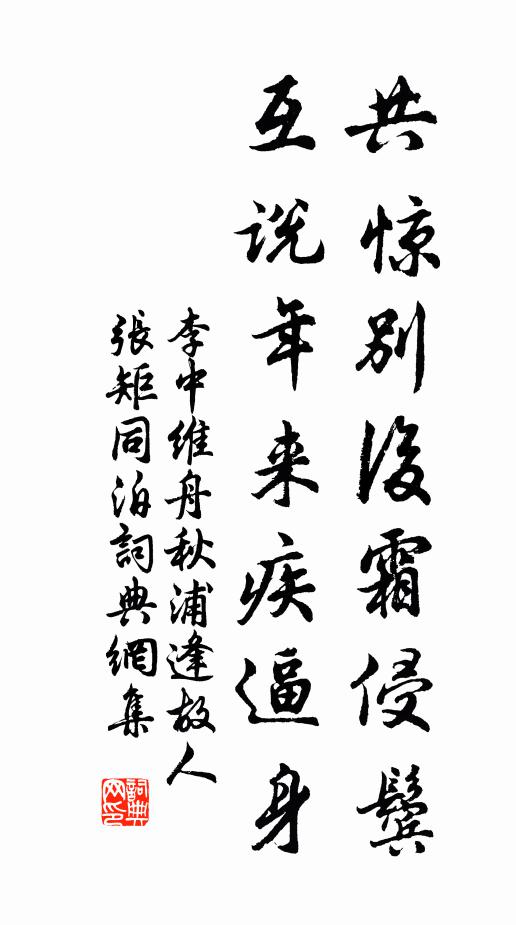 共惊别後霜侵鬓
互说年来疾逼身
李中维舟秋浦逢故人
張矩同泊詞典網集
詞典
网印